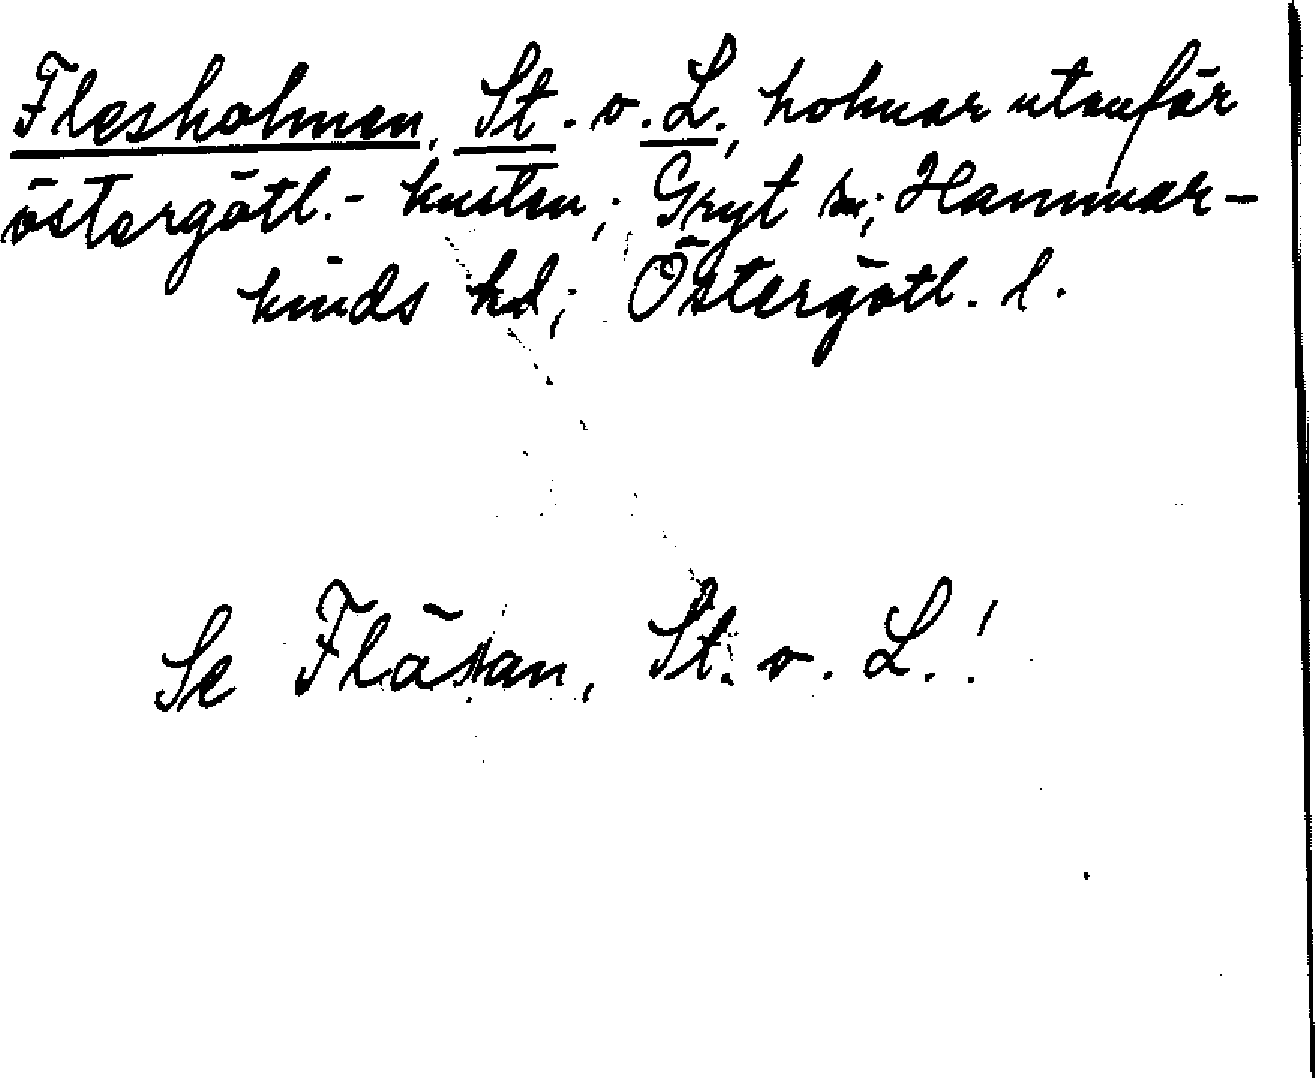 Flesholmen, St. o. L., holmar utanför
östergötl.- kusten; Gryt sn; Hammar-
kinds hd; Östergötl. l.
Se Fläsan, St. o. L.!